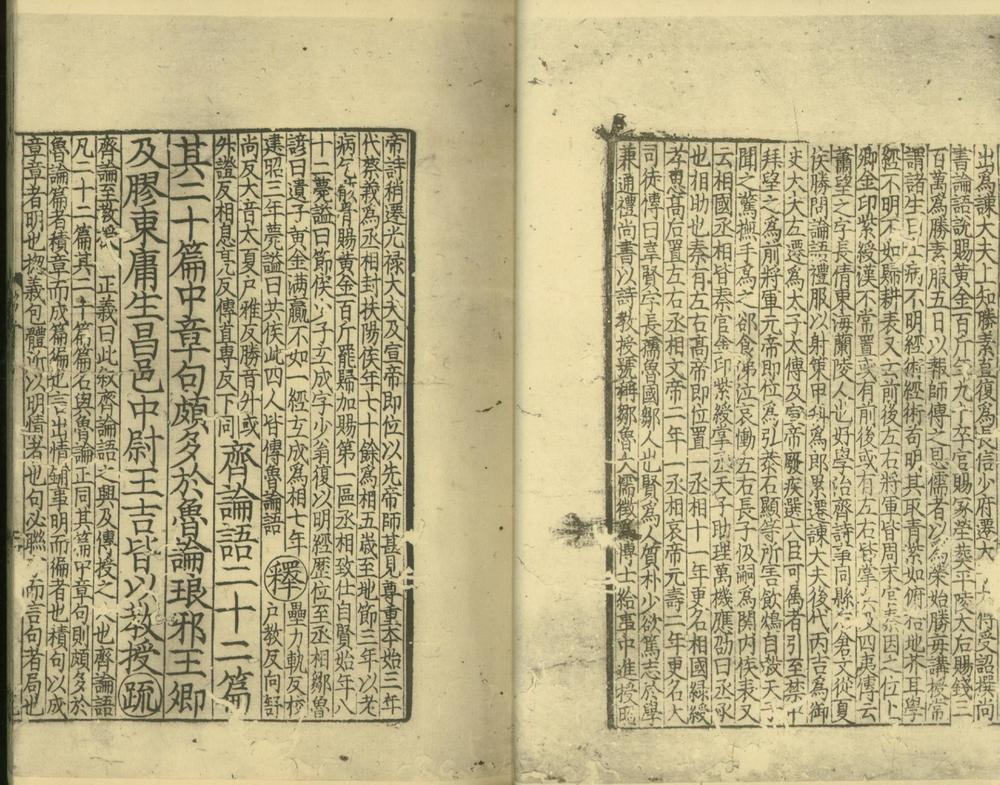 出為諫大夫上知勝素直復為長信少府遷太
書論語說賜黃金百斤年九十卒官賜冢塋葬平陵太后賜錢三
百萬為勝素服五日以報師傅之恩儒者以為榮始勝每講授常
謂諸生曰士病不明經術經術苟明其取青紫如俛拾地芥耳學
經不明不如歸耕表又云前後左右將軍皆周末官秦因之位上
卿金印紫綬漢不常置或有前後或有左右皆掌兵及四夷傅云
蕭望之字長倩東海蘭陵人也好學治齊詩事同縣后倉又從夏
侯勝問論語禮服以射策甲科為郎累遷諫大夫後代丙吉為御
史大夫左遷為太子太傅及宣帝寢疾選大臣可屬者引至禁中
拜望之為前將軍元帝即位為弘恭石顯等所害飲鴆自殺天子
聞之驚拊手為之卻食涕泣哀慟左右長子伋嗣為關內侯表又
云相國丞相皆秦官金印紫綬掌丞天子助理萬機應劭曰丞承
也相助也秦有左右高帝即位置一丞相十一年更名相國綠綬
孝惠高后置左右丞相文帝二年一丞相哀帝元壽二年更名大
司徒傳曰韋賢字長孺魯國鄒人也賢為人質朴少欲篤志於學
兼通禮尚書以詩教授號稱鄒魯大儒徵博士給事中進授昭
帝詩稍遷光祿大夫及宣帝即位以先帝師甚見尊重本始三年
代蔡義為丞相封扶陽侯年七十餘為相五歲至地節三年以老
病乞骸骨賜黃金百斤罷歸加賜第一區丞相致仕自賢始年八
十二薨謚曰節侯少子玄成字少翁復以明經歷位至丞相鄒魯
諺曰遺子黃金滿籯不如一經玄成為相七年
建昭三年薨謚曰共侯此四人皆傳魯論語
釋 壘力軌反校
戶教反向舒
尚反大音太夏戶雅反勝音升或
外證反相息亮反傳直專反下同
齊論語二十二篇
其二十篇中章句頗多於魯論琅邪王卿
及膠東庸生昌邑中尉王吉皆以教授 疏
齊論至教授 正義曰此敘齊論語之興及傳授之人也齊論語
凡二十二篇其二十篇篇名與魯論正同其篇中章句則頗多於
魯論篇者積章而成篇徧也言出情鋪事明而徧者也積句以成
章章者明也揔義包體所以明情者也句必聯 而言句者局也